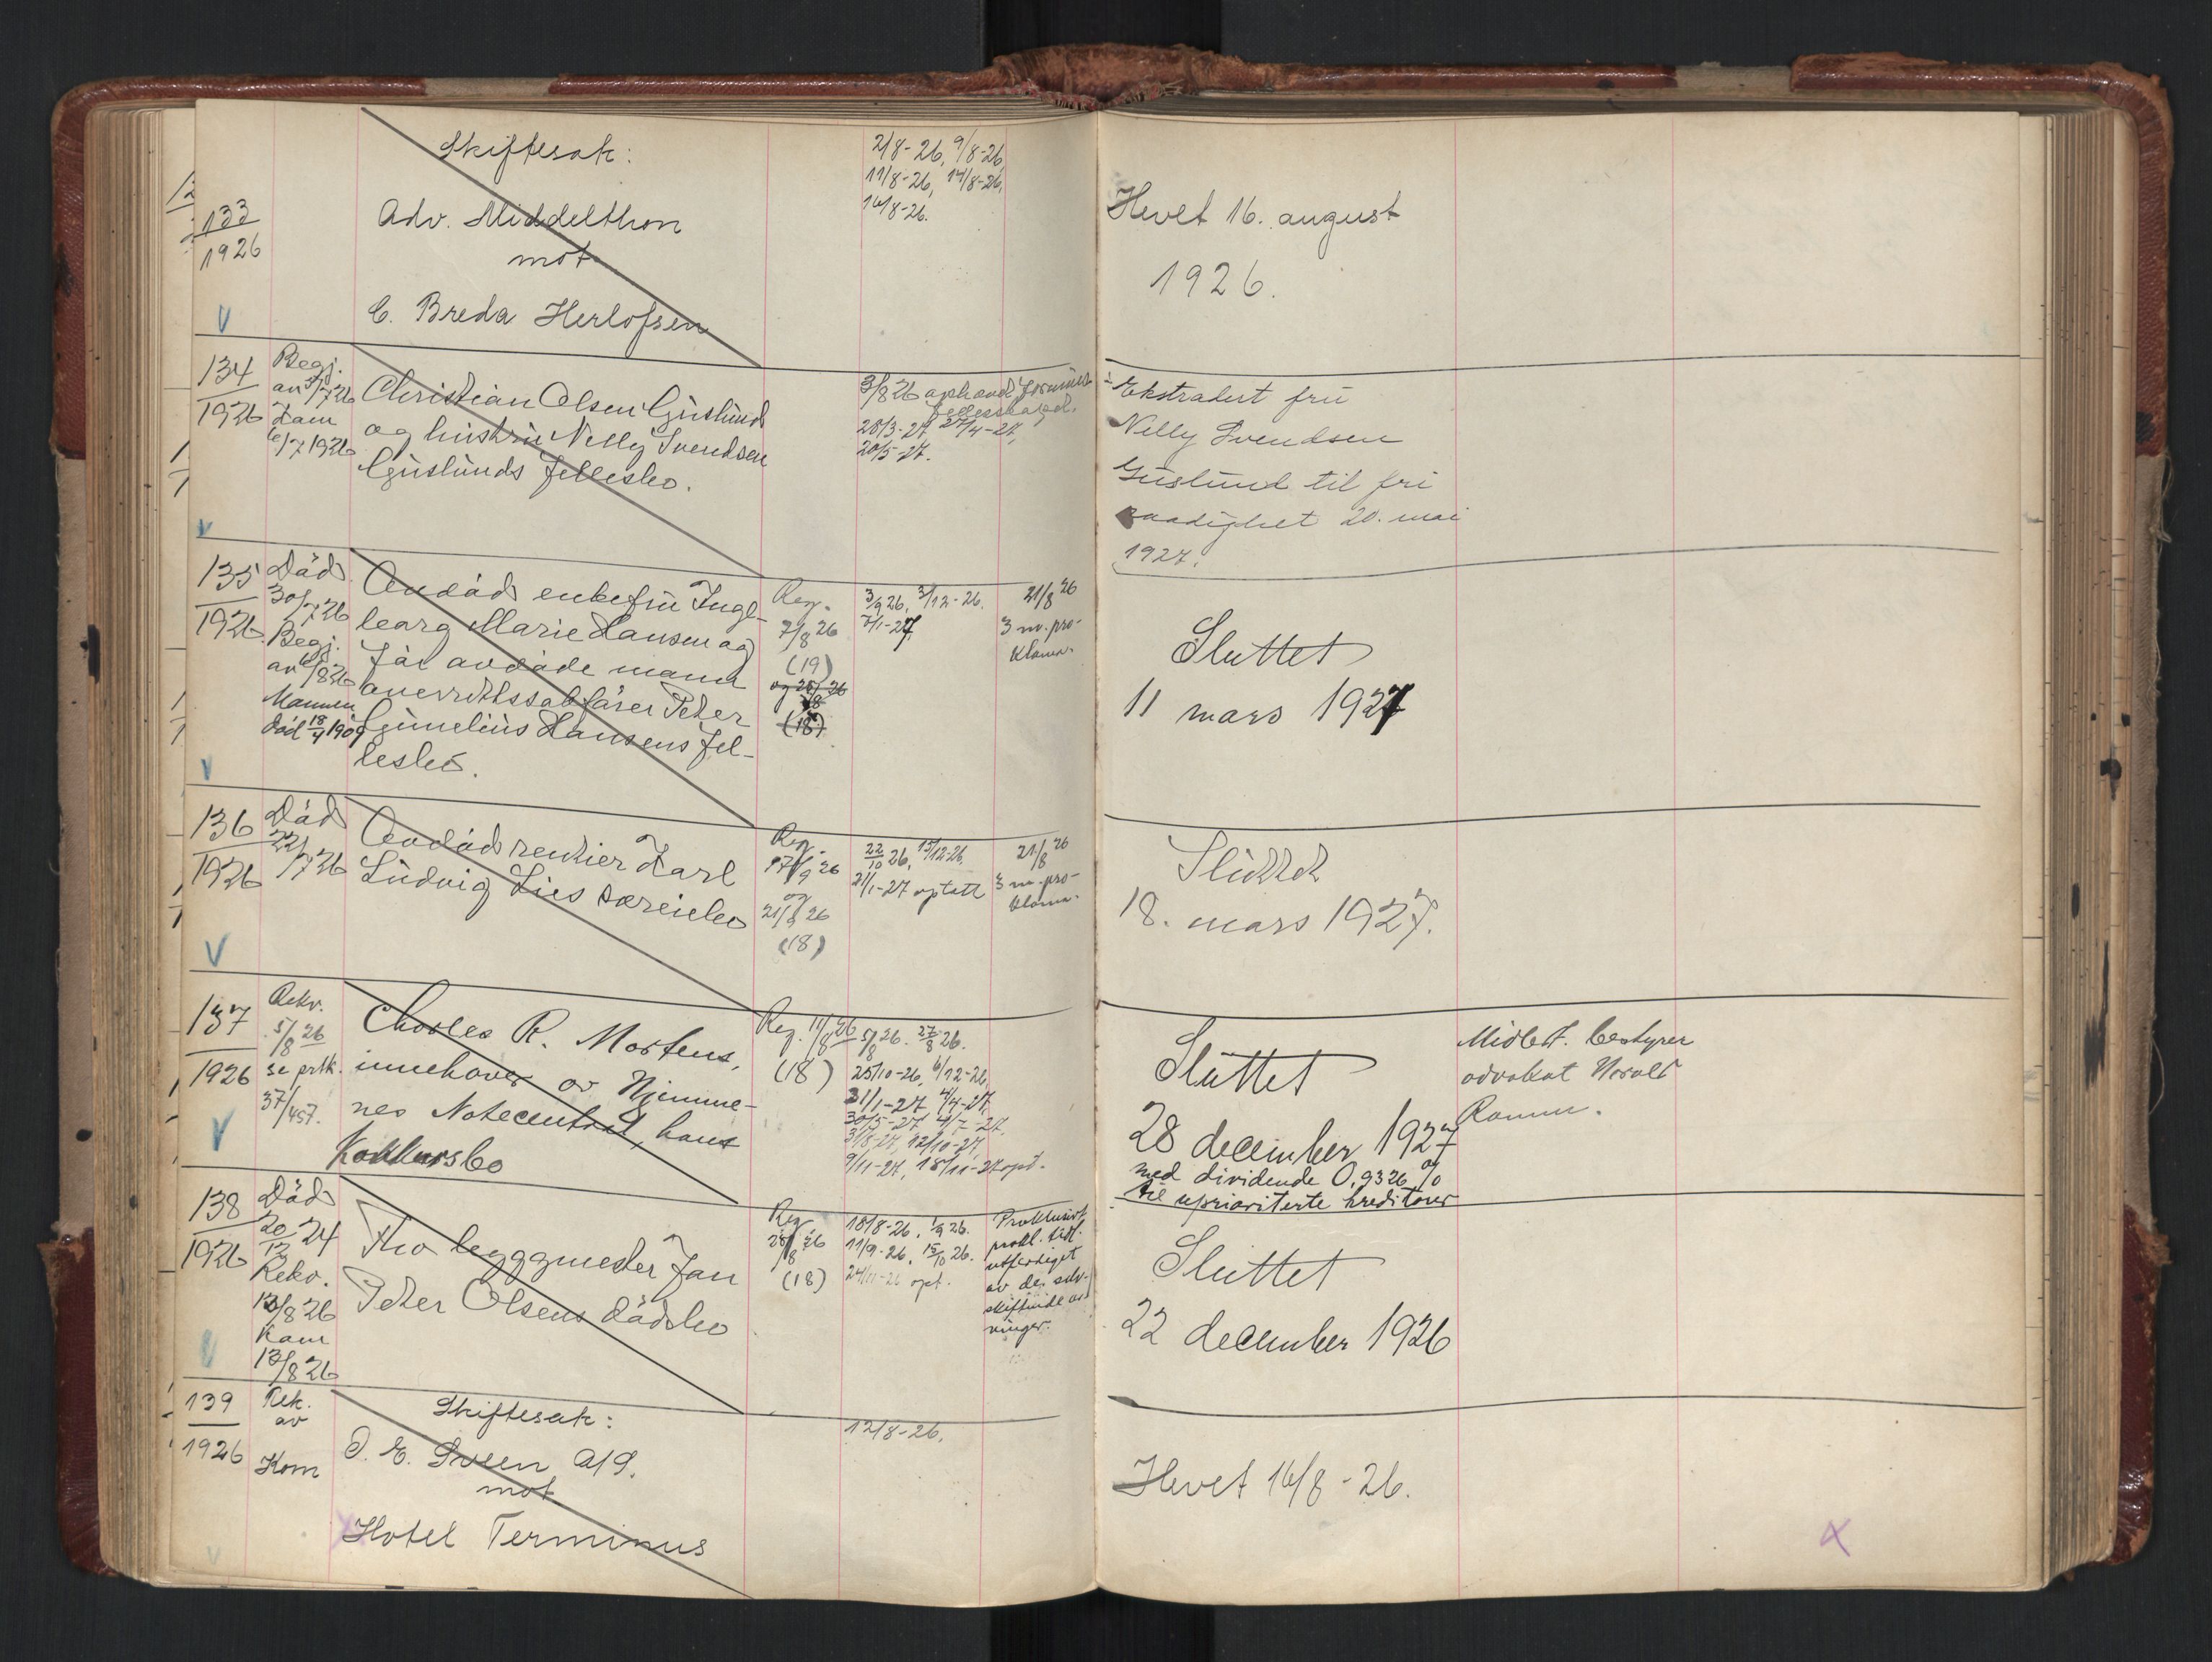 133
1926
Skiftesak:
Adv. Middelthon
mot
C. Breda Herlofsen
2/8-26, 9/8-26
11/8-26, 14/8-26,
16/8-26.
Hevet 16. august
1926.
134
1926
Begj.
av 3/7 26
Kam
6/7 1926
Christian Olsen Guslund
og hustru Nelly Svendsen
Guslunds fellesbo.
3/8 26
28/3-27 27/4-27,
20/5-27.
Ekstradert fru
Nelly Svendsen
Guslund til fri
raadighet 20. mai
1927.
135
1926
Död
30/7 26
Begj.
av 6/8 26
Mannen
död 18/4 1909
Avdöd enkefru Inge-
borg Marie Hansen og
för avdöde mann
Gunelius Hansens fel-
lesbo.
Reg.
7/8 26
(19)
og 28/8 26
(18)
3/9 26, 3/12-26.
7/1-27,
21/8 26
3 m. pro-
klama.
Sluttet
11 mars 1927
136
1926
Död
22/7 26
Avdöd rentier Karl
Ludvig Lies særeiebo
Reg.
17/9 26
og
21/8 26
(18)
22/10 26, 15/12-26.
21/1-27 optatt
21/8 26
3 m. pro-
klama.
Sluttet
18. mars 1927.
137
1926
Rekv.
5/8 26
se prtk.
37/457.
Charles R. Mortens,
innehaver av Hjemme-
nes Notecentral, hans
Konkursbo
Reg. 11/8 26
(18)
5/8 26. 27/8 26.
25/10-26, 6/12-26,
21/1-27, 4/4-27,
30/5-27, 4/7-27,
31/8-27, 12/10-27,
9/11-27, 18/11-27 opt.
Sluttet
28 december 1927
med dividende 0,9326 %
til uprioriterte kreditorer
Midlert. bestyrer
advokat Harald
Ramm.
138
1926
Död
20/12 24
Rekv.
13/8 26
Kam
13/8 26
Hr byggmester Jan
Peter Olsens dödsbo
Reg.
28/8 26
(18)
18/8-26, 1/9 26.
11/9-26, 15/10 26.
24/11-26 opt.
Preklusivt
prokl. tidl.
utferdiget
av de selv-
skiftende ar-
vinger.
Sluttet
22 december 1926
139
1926
Rek.
av
Kom
Skiftesak:
O. E. Sveen A/S.
mot
Hotel Terminus
12/8-26.
Hevet 16/8-26.